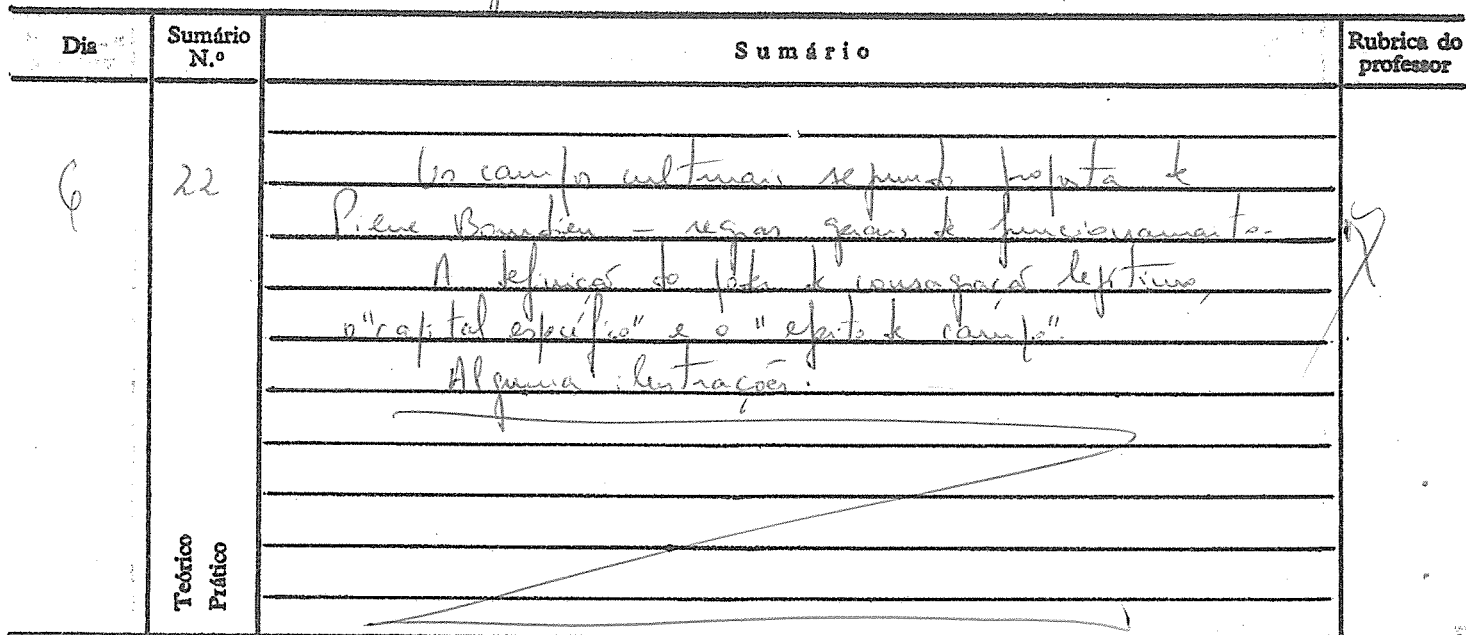 Dia
Sumário N.º
Sumário
Rubrica do professor
6
22
Os campos culturais segundo proposta de
Pierre Bourdieu – regras gerais de funcionamento.
A definição do poder de consagração legítimo,
o "capital específico" e o "efeito de campo".
Algumas ilustrações.
Teórico
Prático